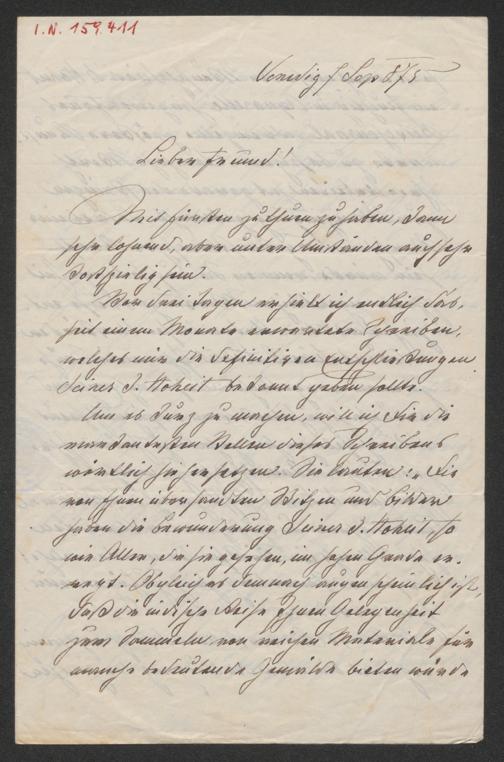 I.N. 159.411
Venedig Sep 875
Lieber Freund!
Mit Fürsten zu thun zu haben, kann
sehr lohnend, aber unter Umständen auch sehr
kostspielig sein.
Vor drei Tagen erhielt ich endlich das,
seit einem Monate erwartete Schreiben,
welches mir die definitiven Entschließungen
Seiner k. Hoheit bekannt geben sollte.
Um es kurz zu machen, will ich Dir die
markantesten Stellen dieses Schreibens
wörtlich hierhersetzen. Sie lauten: „Die
von Ihnen übersandten Skizzen und Bilder
haben die Bewunderung Seiner k. Hoheit, so
wie Aller, die sie gesehen, im hohen Grade er-
regt. Obgleich es demnach augenscheinlich ist,
daß die indische Reise Ihnen Gelegenheit
zum Sammeln von reichem Materiale für
manche bedeutende Gemälde bieten würde